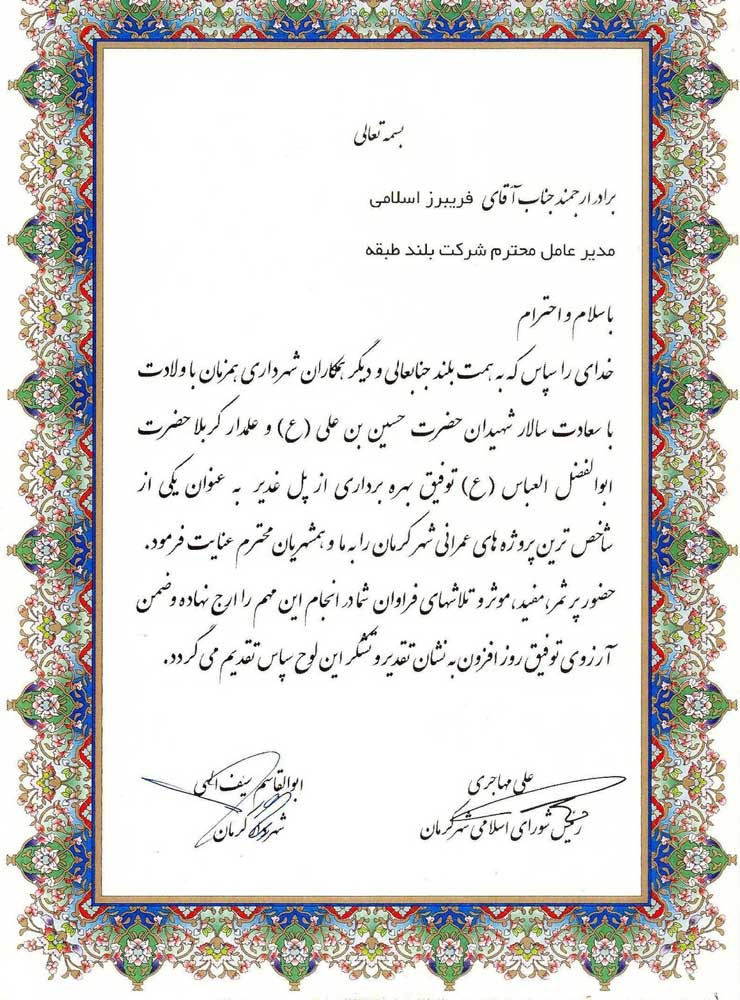 بسمه تعالی
برادر ارجمند جناب آقای فریبرز اسلامی
مدیر عامل محترم شرکت بلند طبقه
با سلام و احترام
خدای را سپاس که به همت بلند جنابعالی و دیگر همکاران شهرداری همزمان با ولادت
با سعادت سالار شهیدان حضرت حسین بن علی (ع) و علمدار کربلا حضرت
ابوالفضل العباس (ع) توفیق بهره برداری از پل غدیر به عنوان یکی از
شاخص ترین پروژه های عمرانی شهر کرمان را به ما و همشهریان محترم عنایت فرمود.
حضور پرثمر، مفید، موثر و تلاشهای فراوان شما در انجام این مهم را ارج نهاده و ضمن
آرزوی توفیق روز افزون به نشان تقدیر و تشکر این لوح سپاس تقدیم می گردد.
علی مهاجری
رئیس شورای اسلامی شهر کرمان
ابوالقاسم سیف الهی
شهردار کرمان